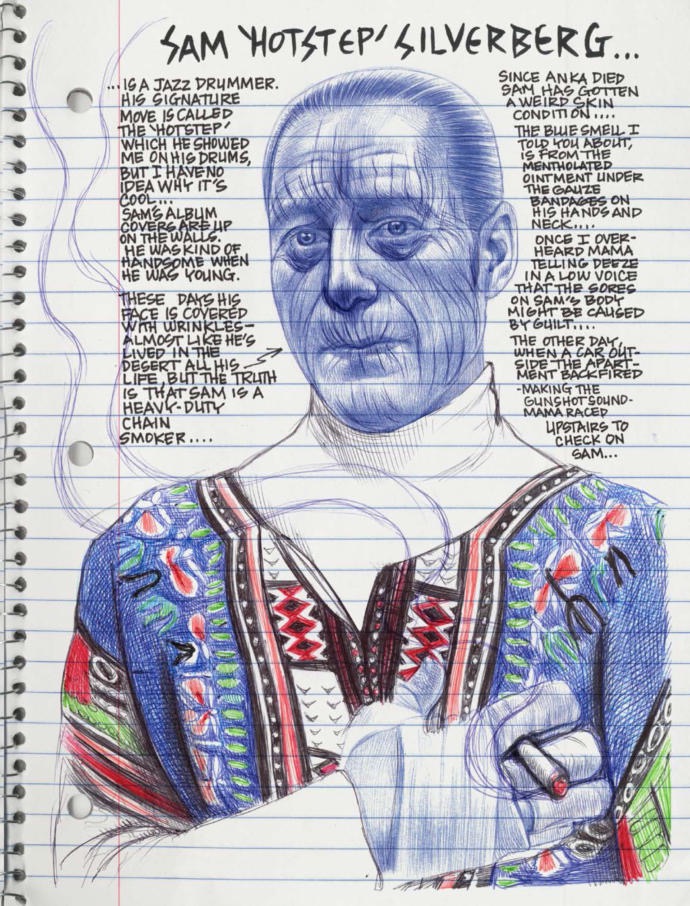 SAM 'HOTSTEP' SILVERBERG...
...IS A JAZZ DRUMMER.
HIS SIGNATURE
MOVE IS CALLED
THE 'HOTSTEP'
WHICH HE SHOWED
ME ON HIS DRUMS,
BUT I HAVE NO
IDEA WHY IT'S
COOL...
SAM'S ALBUM
COVERS ARE UP
ON THE WALLS.
HE WAS KIND OF
HANDSOME WHEN
HE WAS YOUNG.
THESE DAYS HIS
FACE IS COVERED
WITH WRINKLES-
ALMOST LIKE HE'S
LIVED IN THE
DESERT ALL HIS
LIFE, BUT THE TRUTH
IS THAT SAM IS A
HEAVY-DUTY
CHAIN
SMOKER....
SINCE ANKA DIED
SAM HAS GOTTEN
A WEIRD SKIN
CONDITION....
THE BLUE SMELL I
TOLD YOU ABOUT,
IS FROM THE
MENTHOLATED
OINTMENT UNDER
THE GAUZE
BANDAGES ON
HIS HANDS AND
NECK....
ONCE I OVER-
HEARD MAMA
TELLING DEEZE
IN A LOW VOICE
THAT THE SORES
ON SAM'S BODY
MIGHT BE CAUSED
BY GUILT....
THE OTHER DAY,
WHEN A CAR OUT-
SIDE THE APART-
MENT BACKFIRED
-MAKING THE
GUNSHOT SOUND-
MAMA RACED
UPSTAIRS TO
CHECK ON
SAM...